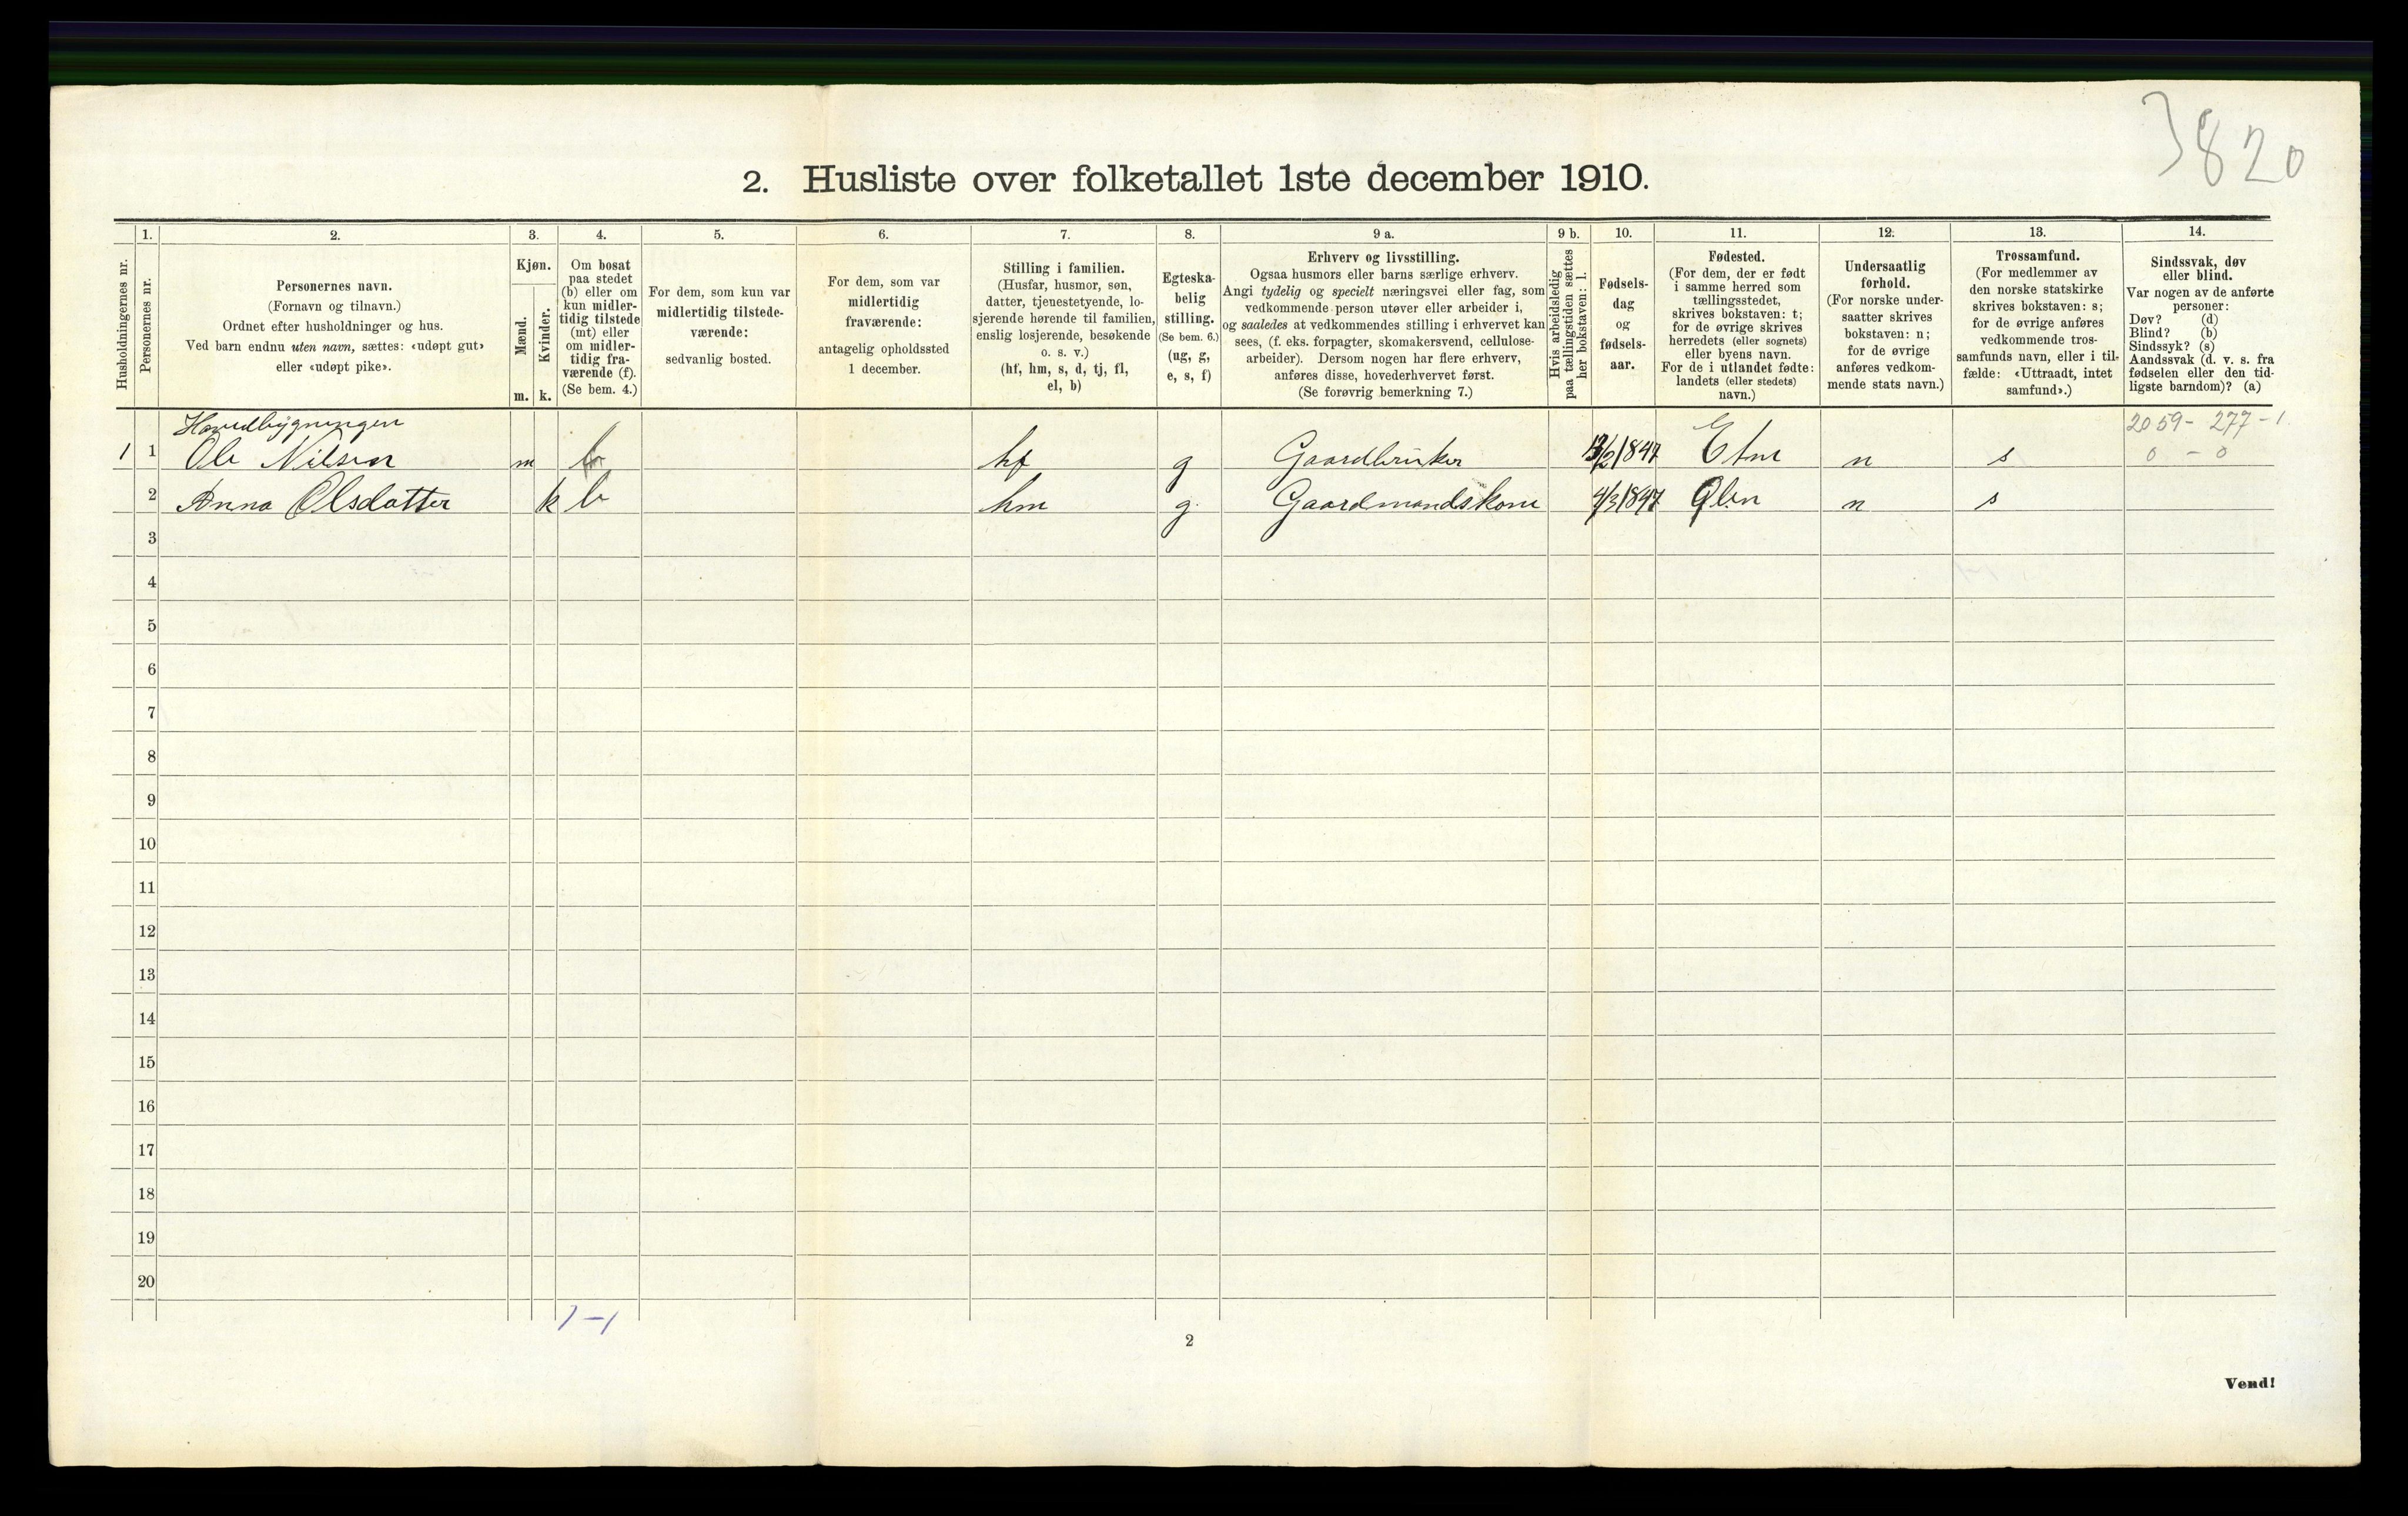 3820
2. Husliste over folketallet 1ste december 1910.
Husholdningernes nr.
1.
Personernes nr.
2.
Personernes navn.
(Fornavn og tilnavn.)
Ordnet efter husholdninger og hus.
Ved barn endnu uten navn, sættes: «udøpt gut»
eller «udøpt pike».
3.
Kjøn.
Mænd.
Kvinder.
m. k.
4.
Om bosat
paa stedet
(b) eller om
kun midler-
tidig tilstede
(mt) eller
om midler-
tidig fra-
værende (f).
(Se bem. 4.)
5.
For dem, som kun var
midlertidig tilstede-
værende:
sedvanlig bosted.
6.
For dem, som var
midlertidig
fraværende:
antagelig opholdssted
1 december.
7.
Stilling i familien.
(Husfar, husmor, søn,
datter, tjenestetyende, lo-
sjerende hørende til familien,
enslig losjerende, besøkende
o. s. v.)
(hf, hm, s, d, tj, fl,
el, b)
8.
Egteska-
belig
stilling.
(Se bem. 6.)
(ug, g,
e, s, f)
9 a.
Erhverv og livsstilling.
Ogsaa husmors eller barns særlige erhverv.
Angi tydelig og specielt næringsvei eller fag, som
vedkommende person utøver eller arbeider i,
og saaledes at vedkommendes stilling i erhvervet kan
sees, (f. eks. forpagter, skomakersvend, cellulose-
arbeider). Dersom nogen har flere erhverv,
anføres disse, hovederhvervet først.
(Se forøvrig bemerkning 7.)
9 b.
Hvis arbeidsledig
paa tællingstiden sættes
her bokstaven: l.
10.
Fødsels-
dag
og
fødsels-
aar.
11.
Fødested.
(For dem, der er født
i samme herred som
tællingsstedet,
skrives bokstaven: t;
for de øvrige skrives
herredets (eller sognets)
eller byens navn.
For de i utlandet fødte:
landets (eller stedets)
navn.)
12.
Undersaatlig
forhold.
(For norske under-
saatter skrives
bokstaven: n;
for de øvrige
anføres vedkom-
mende stats navn.)
13.
Trossamfund.
(For medlemmer av
den norske statskirke
skrives bokstaven: s;
for de øvrige anføres
vedkommende tros-
samfunds navn, eller i til-
fælde: «Uttraadt, intet
samfund».)
14.
Sindssvak, døv
eller blind.
Var nogen av de anførte
personer:
Døv? (d)
Blind? (b)
Sindssyk? (s)
Aandssvak (d. v. s. fra
fødselen eller den tid-
ligste barndom)? (a)
Hovedbygningen 2059 - 277 - 1
1 1 Ole Nilsen m b hf g Gaardbruker 13/2 1847 Etne n s 0 - 0
2 Anna Olsdatter k b hm g. Gaardmandskone 4/3 1847 Ølen n s
3
4
5
6
7
8
9
10
11
12
13
14
15
16
17
18
19
20
1-1
2
Vend!